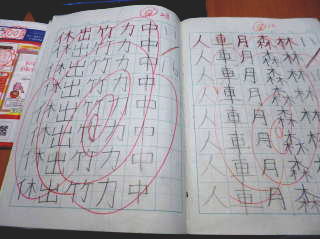 林林林林林林林
森森森森森森森
月月月月月月月
車車車車車車車
人人人人人人人
中中中中中中中中
力力力力力力力力
竹竹竹竹竹竹竹竹
出出出出出出出出
休休休休休休休休